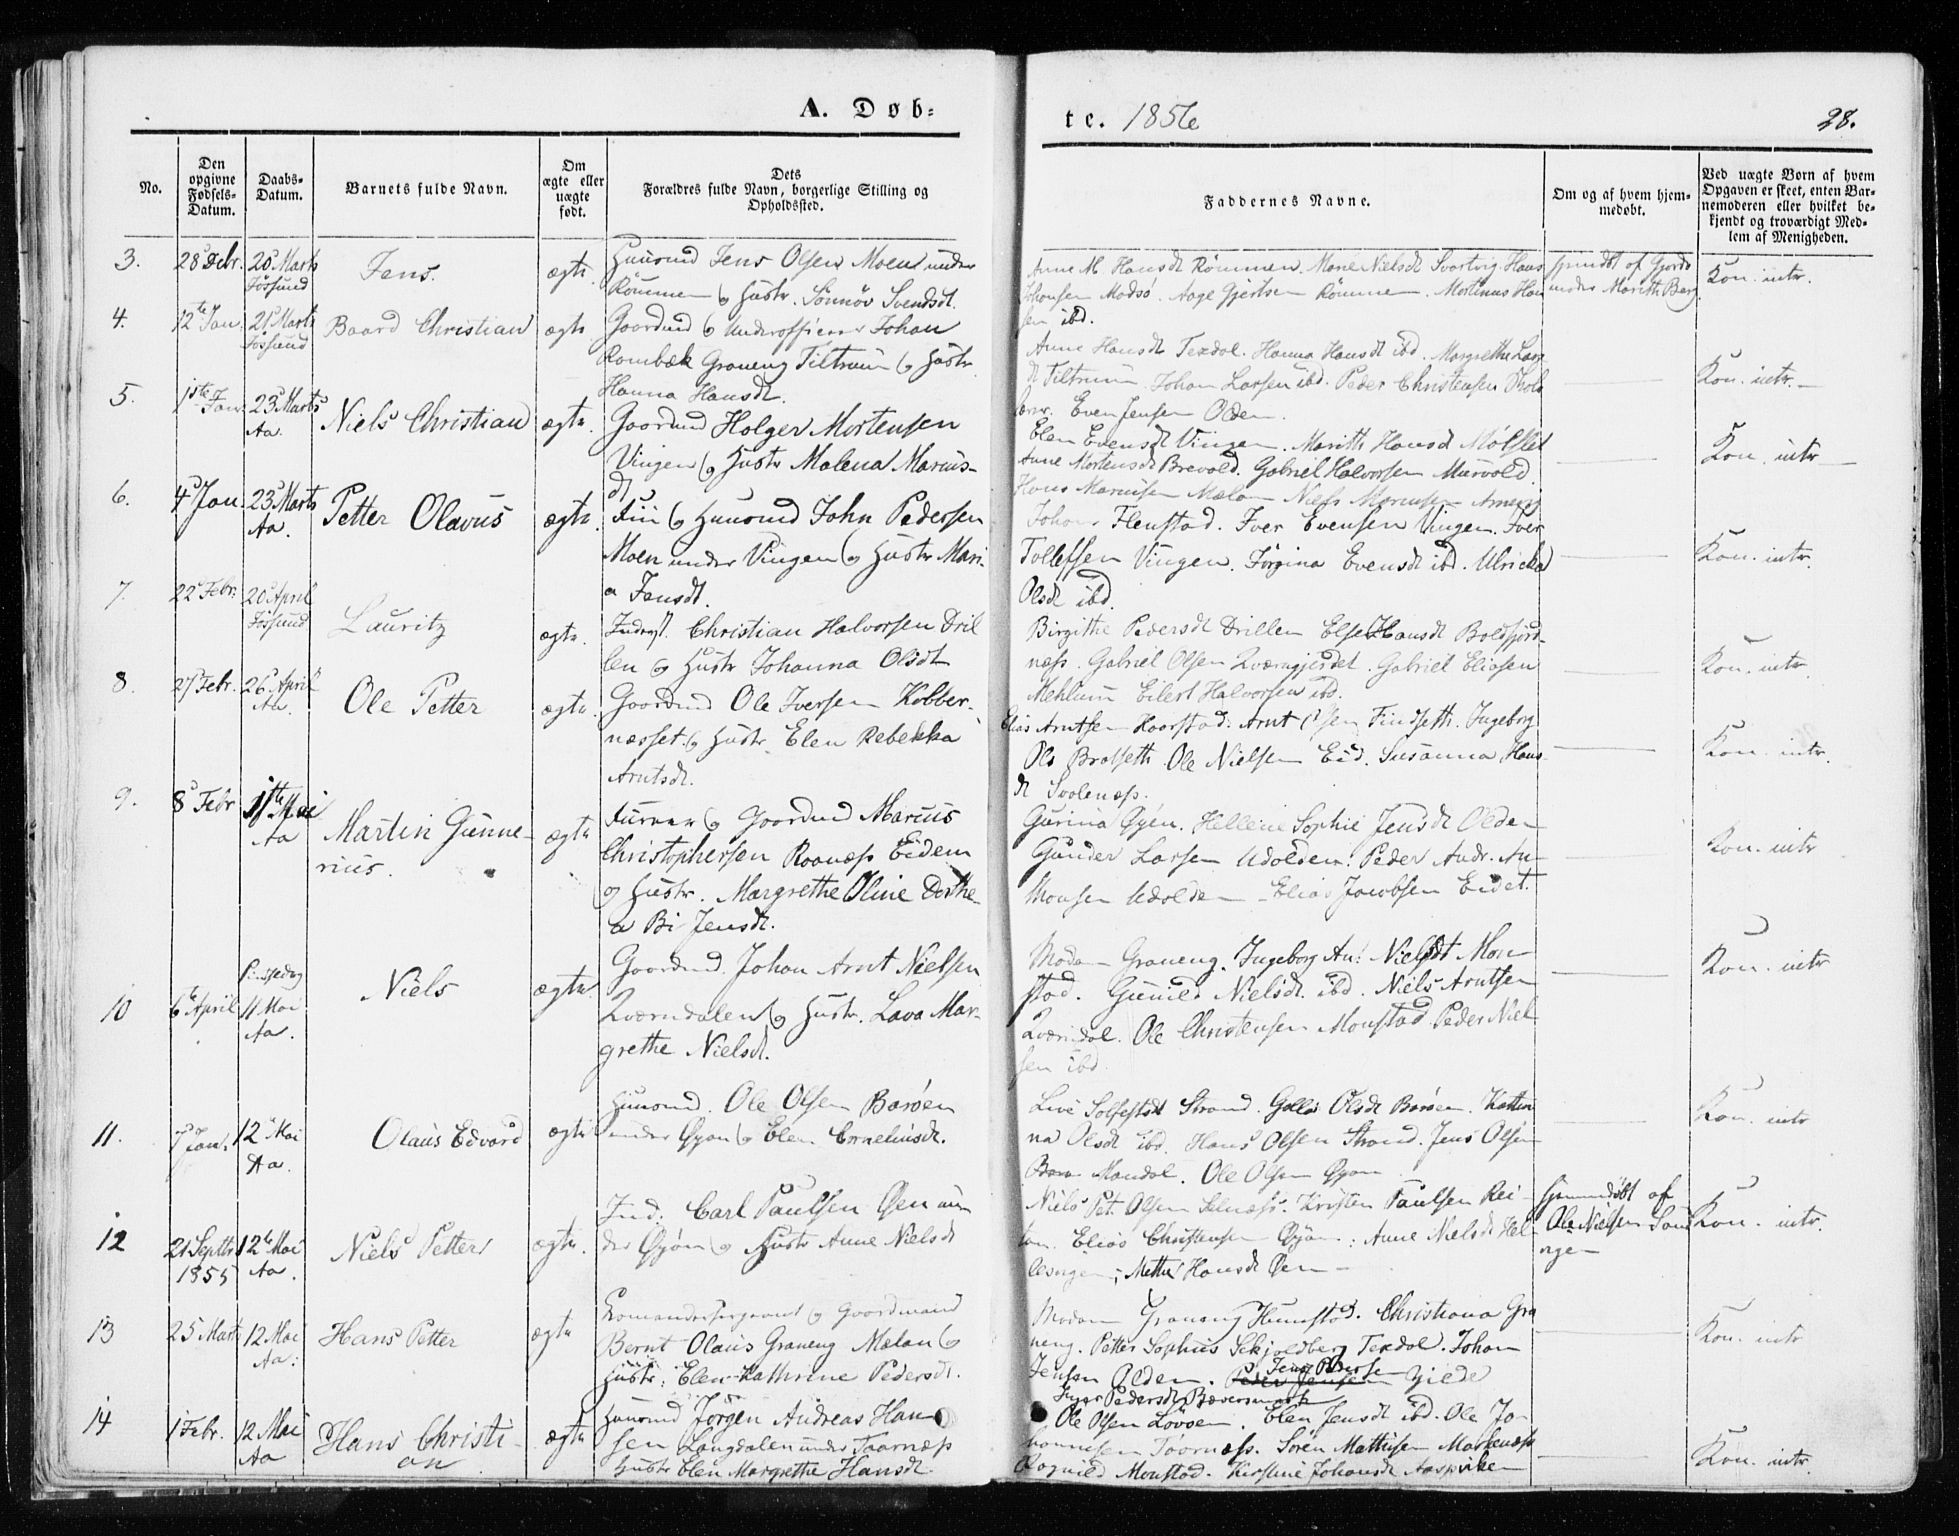 A. Døb-
te. 1856
28.
No.
Den opgivne Fødsels-Datum.
Daabs-Datum.
Barnets fulde Navn.
Om ægte eller uægte født.
Dets Forældres fulde Navn, borgerlige Stilling og Opholdssted.
Faddernes Navne.
Om og af hvem hjem-medøbt.
Ved uægte Børn af hvem Opgaven er skeet, enten Bar-nemoderen eller hvilket be-kjendt og troværdigt Med-lem af Menigheden.
3.
28 Febr.
20 Marts
Jøssund
Jens.
ægte
Huusmd Jens Olsen Moen under
Rømmen og Hustr. Sønnøv Svendsdt.
Anne M. Hansdt Rømmen. Marie Nielsdt Svartvig. Hans
Johansen Modsø. Aage Gjertsen Rømmen. Martinus Han
sen ibd.
Kon. intr.
4.
12te Jan.
21 Marts
Jøssund
Baard Christian
ægte
Gaardmd og Underofficer Johan
Rombæk Graneng Tiltrum og Hustr
Hanna Hansdt.
Anne Hansdt Texdal. Hanna Hansdt ibd. Margrethe Lars
dt Tiltrum. Johan Larsen ibd. Peder Christensen
Even Jensen Olden.
Kon. intr.
5.
1ste Jan.
23 Marts
Aa.
Niels Christian
ægte.
Gaardmd Holger Mortensen
Vingen og Hustr Malena Marius-
dt
Elen Evensdt Vingen. Marith Hansdt
Anne Mortensdt Brevold. Gabriel Halvorsen Murvold.
Hans Mariusen Mælan Niels Mariusen
Kon. intr
6.
4 Jan.
23 Marts
Aa.
Petter Olavus
ægte.
og Huusmd John Pedersen
Moen under Vingen og Hustr Mari-
a Jensdt.
Johan Flenstad. Iver Evensen Vingen. Iver
Tollefsen Vingen. Jørgina Evensdt ibd. Ulricka
Olsdt ibd.
Kon. intr.
7.
22 Febr.
20 April
Jøssund
Lauritz
ægte.
Inderst. Christian Halvorsen Dril
len og Hustr Johanna Olsdt
Birgithe Pedersdt Drillen Else Hansdt Boldfjord-
næss. Gabriel Olsen Qværngjerdet. Gabriel Eliasen
Mehlum Eilert Halvorsen ibd.
Kon. intr.
8.
27 Febr.
26 April
Aa.
Ole Petter
ægte.
Gaardmd Ole Iversen Kobber-
næsset. og Hustr. Elen Rebekka
Arntsdt.
Elias Arntsen Haarstad. Arnt Olsen Findseth. Ingeborg
Ols Bralseth. Ole Nielsen Eid. Susanna Hans-
dt Svolenæss.
Kon. intr.
9.
8 Febr
1te Mai
Aa
Martin Gunne-
rius.
ægte
og Gaardmd Marcus
Christophersen Raanæss Eidem
og Hustr. Margrethe Oline Dorthe-
a Bi Jensdt.
Gurina Øyen. Hellene Sophie Jensdt Olden
Gunder Larsen Udolden. Peder Andr. An-
Monsen Udolden - Elias Jacobsen Eidet.
Kon. intr
10
6te April
Pinsedag
11 Mai
Aa.
Niels
ægte.
Gaardmd. Johan Arnt Nielsen
Qværndalen og Hustr. Lava Mar-
grethe Nielsdt.
Madam Graneng. Ingeborg An. Nielsdt Mon-
stad. Gunild Nielsdt. ibd. Niels Arntsen
Qværndal. Ole Christensen Monstad. Peder Niel-
sen ibd
Kon. intr
11.
7 Jan.
12 Mai
Aa.
Olaus Edvard
ægte
Huusmd. Ole Olsen Barøen
under Øyan og Elen Corneliusdt.
Live Strand. Olsdt Barøen. Kathri
na Olsdt ibd. Hans Olsen Strand. Jens Olsen
Mandal. Ole Olsen Øyan
Kon. intr
12
21 Septbr
1855
12te Mai
Aa.
Niels Petter
ægte.
Ind. Carl Paulsen Øen un
der Øyan og Hustr Anne Nielsdt
Niels Pet. Olsen Selnæss. Kristen Paulsen Rei-
tan. Elias Christensen Øyan. Anne Nielsdt Hel-
; Mette Hansdt Øen -
Hjemmedøbt af
Ole Nielsen
Kon. intr.
13
25 Marts
12 Mai
Aa.
Hans Petter
ægte
Commandersergeant og Gaardmand
Bernt Olaus Graneng Mælan og
Hustr. Elen Kathrine Pedersdt.
Madam Graneng Hunstad. Christiana Gra
neng. Petter Sophus Schjoldberg Texdal. Johan
Jensen Olden. Peder Jensen Gjede
Kon. intr
14
1 Febr.
12 Mai
Aa
Hans Christi-
an
ægte
Huusmd Jørgen Andreas Han-
sen Langdalen under Taarnæss
Hustr Elen Margrethe Hansdt.
Inger Pedersdt
Ole Olsen Løvøen. Elen Jensdt ibd. Ole Jo-
hannesen Taarnæss. Søren Mathisen
Ragnild Monstad. Kirstine Johansdt Aasviken
Kon. intr.